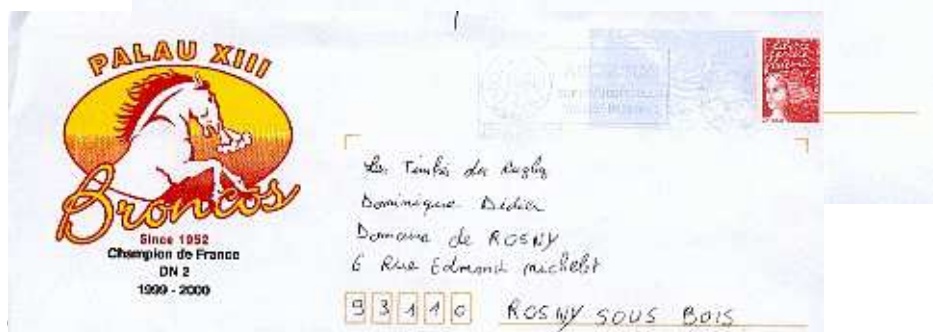 PALAU XIII
Broncos
Since 1952
Champion de France
DN 2
1999 - 2000
Les Timbrés du Rugby
Dominique Didier
Domaine de ROSNY
6 Rue Edmond michelet
93110 ROSNY SOUS BOIS